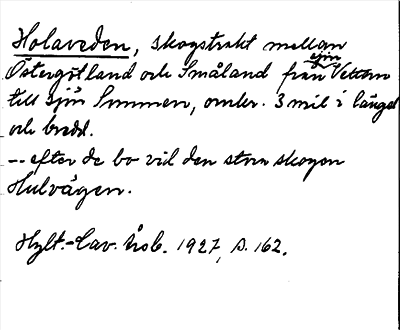 Holaveden, skogstrakt mellan
Östergötland och Småland från sjön Vettern
till sjön Sommen, omkr. 3 mil i längd
och bredd.
-- efter de bo vid den stora skogen
Hulvägen.
Hylt.-Cav. Års. 1927, s. 162.